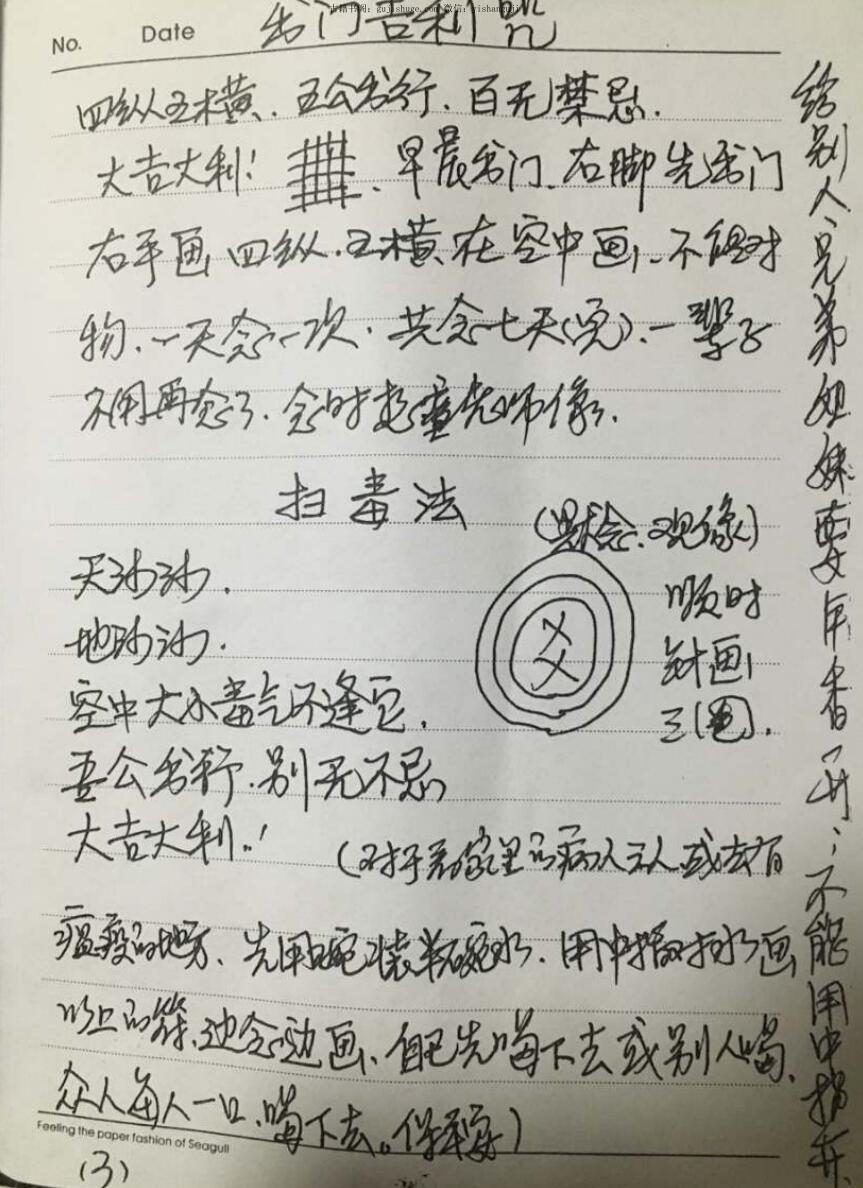 No. Date
出门吉利咒
四纵五横、五公出行、百无禁忌.
大吉大利! 、早晨出门、右脚先出门
右手画四纵.五横在空中画、不能对
物、一天念一次.共念七天(完)、一辈子
不用再念了、念时想童先师像.
扫毒法
(默念、观像)
天沙沙.
地沙沙.
空中大小毒气不逢它.
吾公出行.别无不忌
大吉大利.!
顺时
针画
三圈.
(对于家里的病人 人或去有
瘟疫的地方、先用碗装半碗水.用中指对水画
以上的符、边念边画、自己先喝下去或别人喝、
众人每人一口、喝下去。保平安)
Feeling the paper fashion of Seagull
(3)
给别人、兄弟姐妹要用香开;不能用中指开